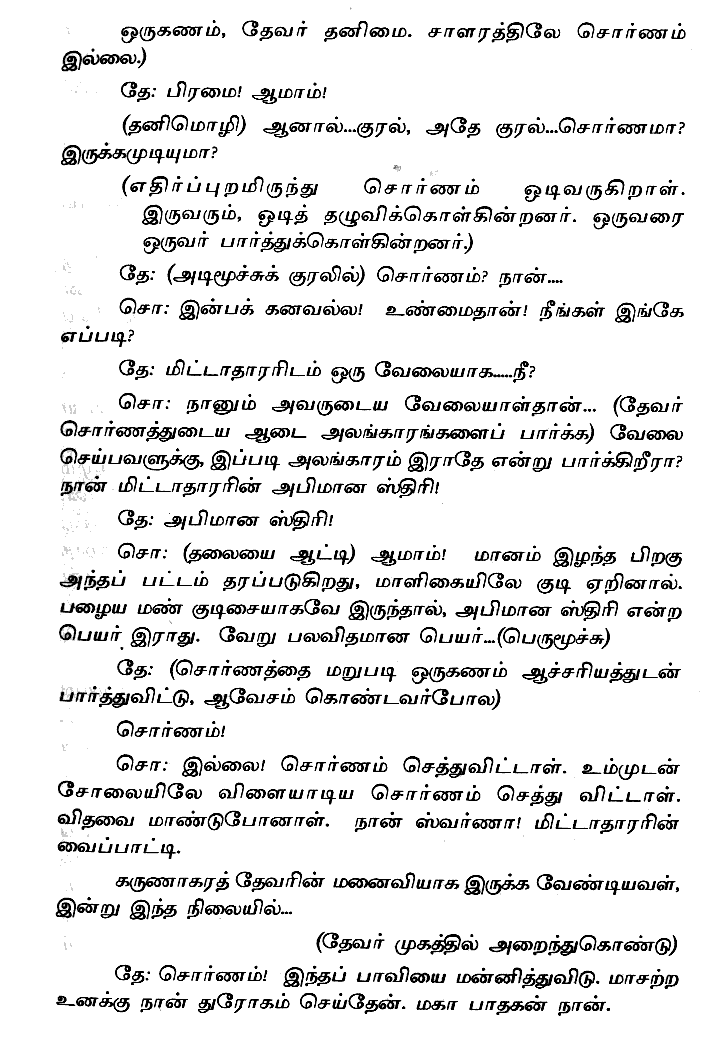 ஒருகணம், தேவர் தனிமை. சாளரத்திலே சொர்ணம்
இல்லை.)
தே: பிரமை! ஆமாம்!
(தனிமொழி) ஆனால்...குரல், அதே குரல்...சொர்ணமா?
இருக்கமுடியுமா?
(எதிர்ப்புறமிருந்து சொர்ணம் ஒடிவருகிறாள்.
இருவரும், ஒடித் தழுவிக்கொள்கின்றனர். ஒருவரை
ஒருவர் பார்த்துக்கொள்கின்றனர்.)
தே: (அடிமூச்சுக் குரலில்) சொர்ணம்? நான்....
சொ: இன்பக் கனவல்ல! உண்மைதான்! நீங்கள் இங்கே
எப்படி?
தே: மிட்டாதாரரிடம் ஒரு வேலையாக.....நீ?
சொ: நானும் அவருடைய வேலையாள்தான்... (தேவர்
சொர்ணத்துடைய ஆடை அலங்காரங்களைப் பார்க்க) வேலை
செய்பவளுக்கு, இப்படி அலங்காரம் இராதே என்று பார்க்கிறீரா?
நான் மிட்டாதாரரின் அபிமான ஸ்திரி!
தே: அபிமான ஸ்திரி!
சொ: (தலையை ஆட்டி) ஆமாம்! மானம் இழந்த பிறகு
அந்தப் பட்டம் தரப்படுகிறது, மாளிகையிலே குடி ஏறினால்.
பழைய மண் குடிசையாகவே இருந்தால், அபிமான ஸ்திரி என்ற
பெயர் இராது. வேறு பலவிதமான பெயர்...(பெருமூச்சு)
தே: (சொர்ணத்தை மறுபடி ஒருகணம் ஆச்சரியத்துடன்
பார்த்துவிட்டு, ஆவேசம் கொண்டவர்போல)
சொர்ணம்!
சொ: இல்லை! சொர்ணம் செத்துவிட்டாள். உம்முடன்
சோலையிலே விளையாடிய சொர்ணம் செத்து விட்டாள்.
விதவை மாண்டுபோனாள். நான் ஸ்வர்ணா! மிட்டாதாரரின்
வைப்பாட்டி.
கருணாகரத் தேவரின் மனைவியாக இருக்க வேண்டியவள்,
இன்று இந்த நிலையில்...
(தேவர் முகத்தில் அறைந்துகொண்டு)
தே: சொர்ணம்! இந்தப் பாவியை மன்னித்துவிடு. மாசற்ற
உனக்கு நான் துரோகம் செய்தேன். மகா பாதகன் நான்.